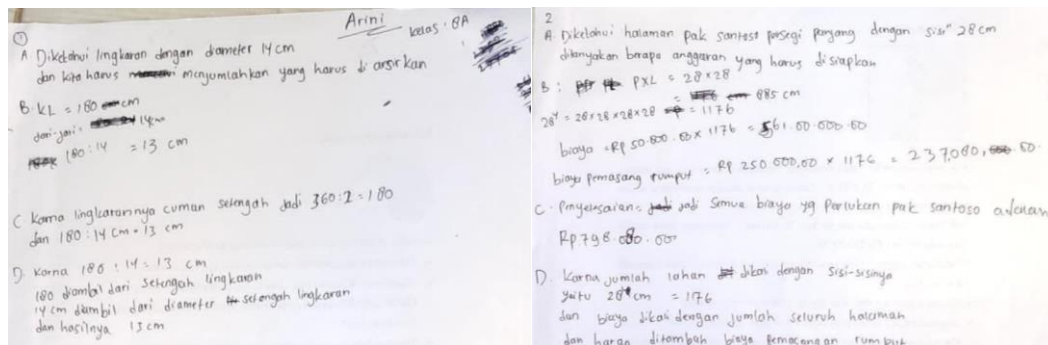 Arini
kelas : 8A
1
A Diketahui lingkaran dengan diameter 14 cm
dan kita harus menjumlahkan yang harus di arsirkan
B. KL = 180 cm
jari-jari = 14 cm
180 : 14 = 13 cm
C. Karna lingkarannya cuman setengah jadi 360:2 = 180
dan 180 : 14 cm = 13 cm
D. Karna 180 : 14 = 13 cm
180 diambil dari setengah lingkaran
14 cm diambil dari diameter setengah lingkaran
dan hasilnya 13 cm
2
A. Diketahui halaman pak santoso persegi panjang dengan sisi" 28 cm
ditanyakan berapa anggaran yang harus disiapkan
B : P X L = 28 × 28
= 885 cm
28⁴ = 28 × 28 × 28 × 28 = 1176
biaya = Rp 50.800.00 × 1176 = 561.00.000.00
biaya pemasang rumput = Rp 250 000,00 × 1176 = 237.000, 00
C. Penyelesaian = jadi semua biaya yg perlukan pak santoso adalah
Rp 798.080.00
D. Karna jumlah lahan dikali dengan sisi-sisinya
yaitu 28⁴ cm = 1176
dan biaya dikali dengan jumlah seluruh halaman
dan harga ditambah biaya pemasangan rumput